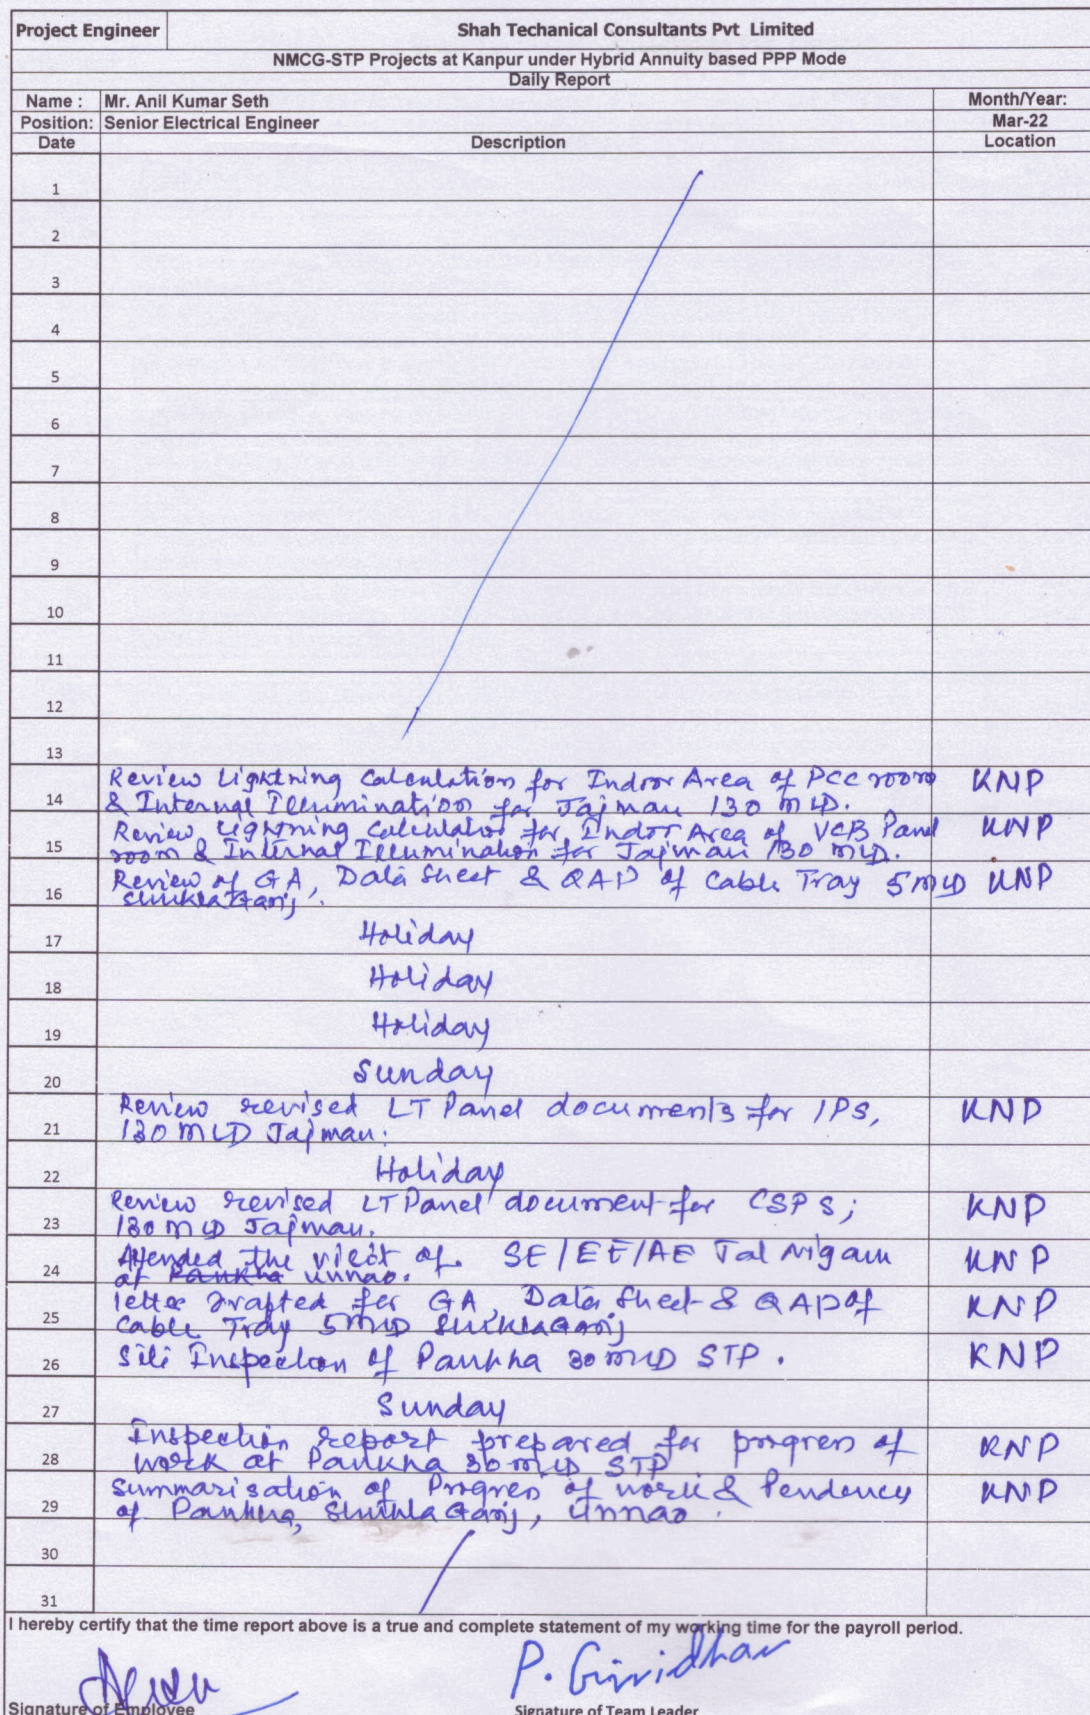 Project Engineer Shah Techanical Consultants Pvt Limited
NMCG-STP Projects at Kanpur under Hybrid Annuity based PPP Mode
Daily Report
Name : Mr. Anil Kumar Seth Month/Year:
Position: Senior Electrical Engineer Mar-22
Date Description Location
1
2
3
4
5
6
7
8
9
10
11
12
13
Review Lightning Calculation for Indoor Area of PCC room KNP
14 & Internal Illumination for Jajmau 130 MLD.
Review Lightning Calculation for Indoor Area of VCB Panel KNP
15 room & Internal Illumination for Jajmau 130 MLD.
Review of GA, Data Sheet & QAP of Cable Tray 5 MLD KNP
16 Shuklaganj.
17 Holiday
18 Holiday
19 Holiday
20 Sunday
Review revised LT Panel documents for IPS, KNP
21 130 MLD Jajmau.
22 Holiday
Review revised LT Panel document for CSPS; KNP
23 130 MLD Jajmau.
Attended the visit of SE/EE/AE Jal Nigam KNP
24 at Pankha Unnao.
letter drafted for GA, Data Sheet & QAP of KNP
25 Cable Tray 5 MLD Shuklaganj
26 Site Inspection of Pankha 30 MLD STP. KNP
27 Sunday
Inspection report prepared for progress of KNP
28 work at Pankha 30 MLD STP
Summarisation of Progress of work & Pendency KNP
29 of Pankha, Shukla Ganj, Unnao.
30
31
I hereby certify that the time report above is a true and complete statement of my working time for the payroll period.
P. Giridhar
Signature of Employee Signature of Team Leader